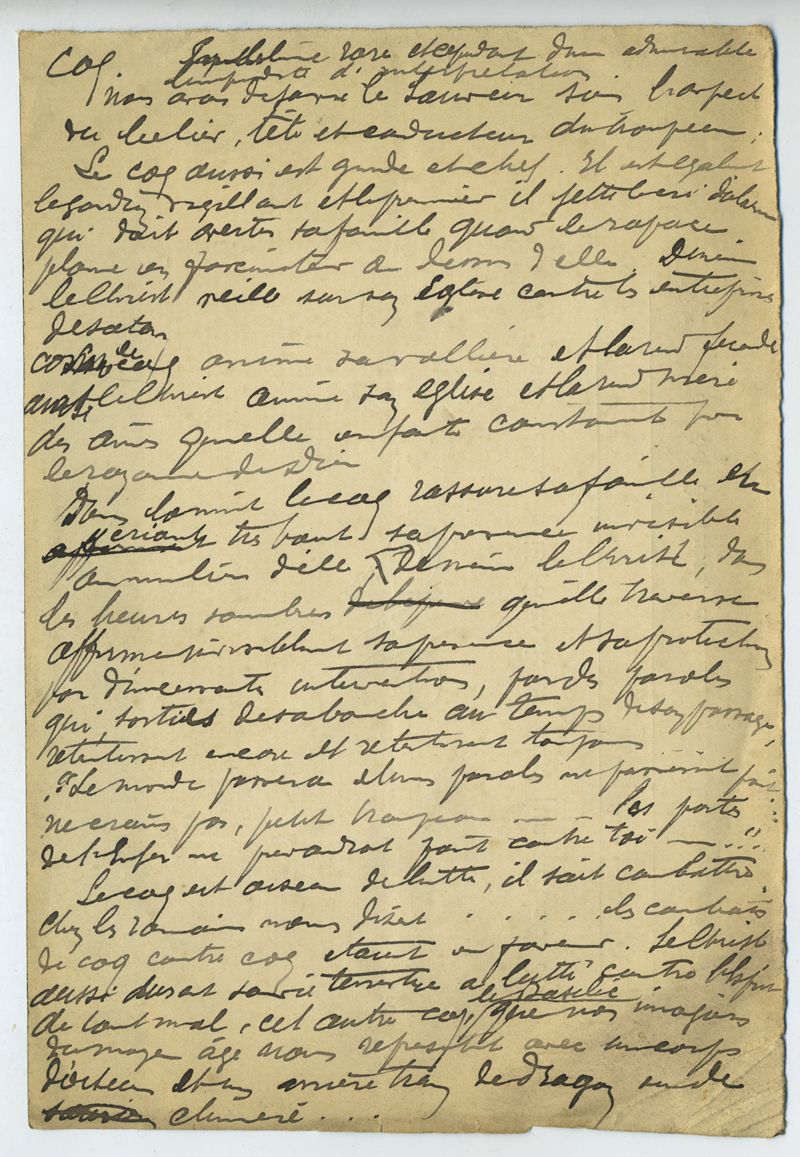 Coq rare et cependant d'une admirable
d'interprétation
Nous avons déjà le Sauveur sous l'aspect
du bélier, tête et conducteur du troupeau ;
Le coq aussi est guide et chef. Il est également
le gardien vigilant et le premier il jette le cri d'alarme
qui doit avertir sa famille quand le rapace
plane en fascinateur au dessus d'elle. De même
le Christ veille sur son Eglise contre les entreprises
de satan
Comme le coq anime sa et la rend féconde
ainsi le Christ anime son église et la rend mère
des âmes qu'elle enfante constamment pour
le royaume de Dieu
Dans la nuit le coq rassure sa famille en
criant très haut sa présence invisible
au milieu d'elle ; De même le Christ, dans
les heures sombres qu'elle traverse
affirme sa présence et sa protection
par d'incessantes interventions, par des paroles
qui, sorties de sa bouche au temps de son passage,
retentirent encore et retentiront toujours
"Le monde passera et mes paroles ne passeront point :
ne crains pas, petit troupeau — – les portes
de l'Enfer ne prévaudront point contre toi — ..!!
Le coq est oiseau de lutte, il sait combattre.
Chez les romains nous disent . . . . . les combats
de coq contre coq étaient en faveur. Le Christ
aussi durant sa vie terrestre a lutté contre
de tout mal, cet autre coq, le basilic que nos imagiers
du moyen âge nous représentent avec un corps
d'oiseau et un arrière train de dragon ou de
chimère . . .